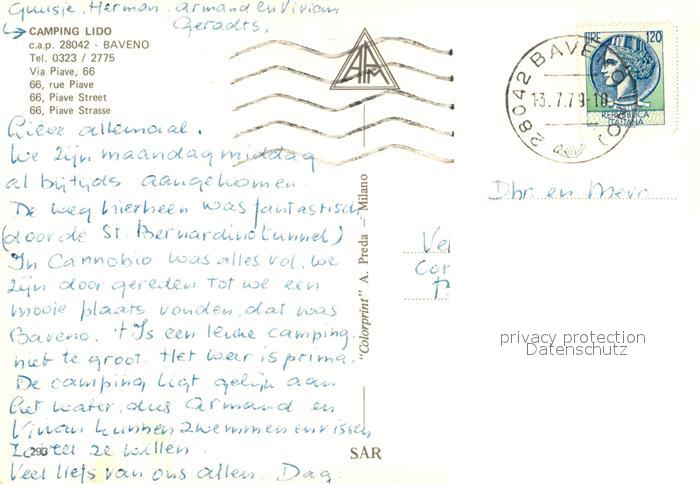 Guusje. Herman. Armand en Vivian
Geradts.
CAMPING LIDO
c.a.p. 28042 - BAVENO
Tel. 0323 / 2775
Via Piave, 66
66, rue Piave
66, Piave Street
66, Piave Strasse
Lieve allemaal.
We zijn maandagmiddag
al bijtijds aangekomen.
De weg hierheen was fantastisch
(door de St. Bernardinotunnel)
In Cannobio was alles vol. we
zijn door gereden tot we een
mooie plaats vonden, dat was
Baveno. 't Is een leuke camping.
niet te groot. Het weer is prima.
De camping ligt gelijk aan
het water, dus Armand en
Vivian kunnen zwemmen en vissen
zoveel ze willen.
Veel liefs van ons allen. Dag.
293
"Colorprint" A. Preda - Milano
SAR
28042 BAVENO
13.7.79-10
LIRE 120
REPUBBLICA
ITALIANA
Dhr. en Mevr.
Vel
Cor
privacy protection
Datenschutz